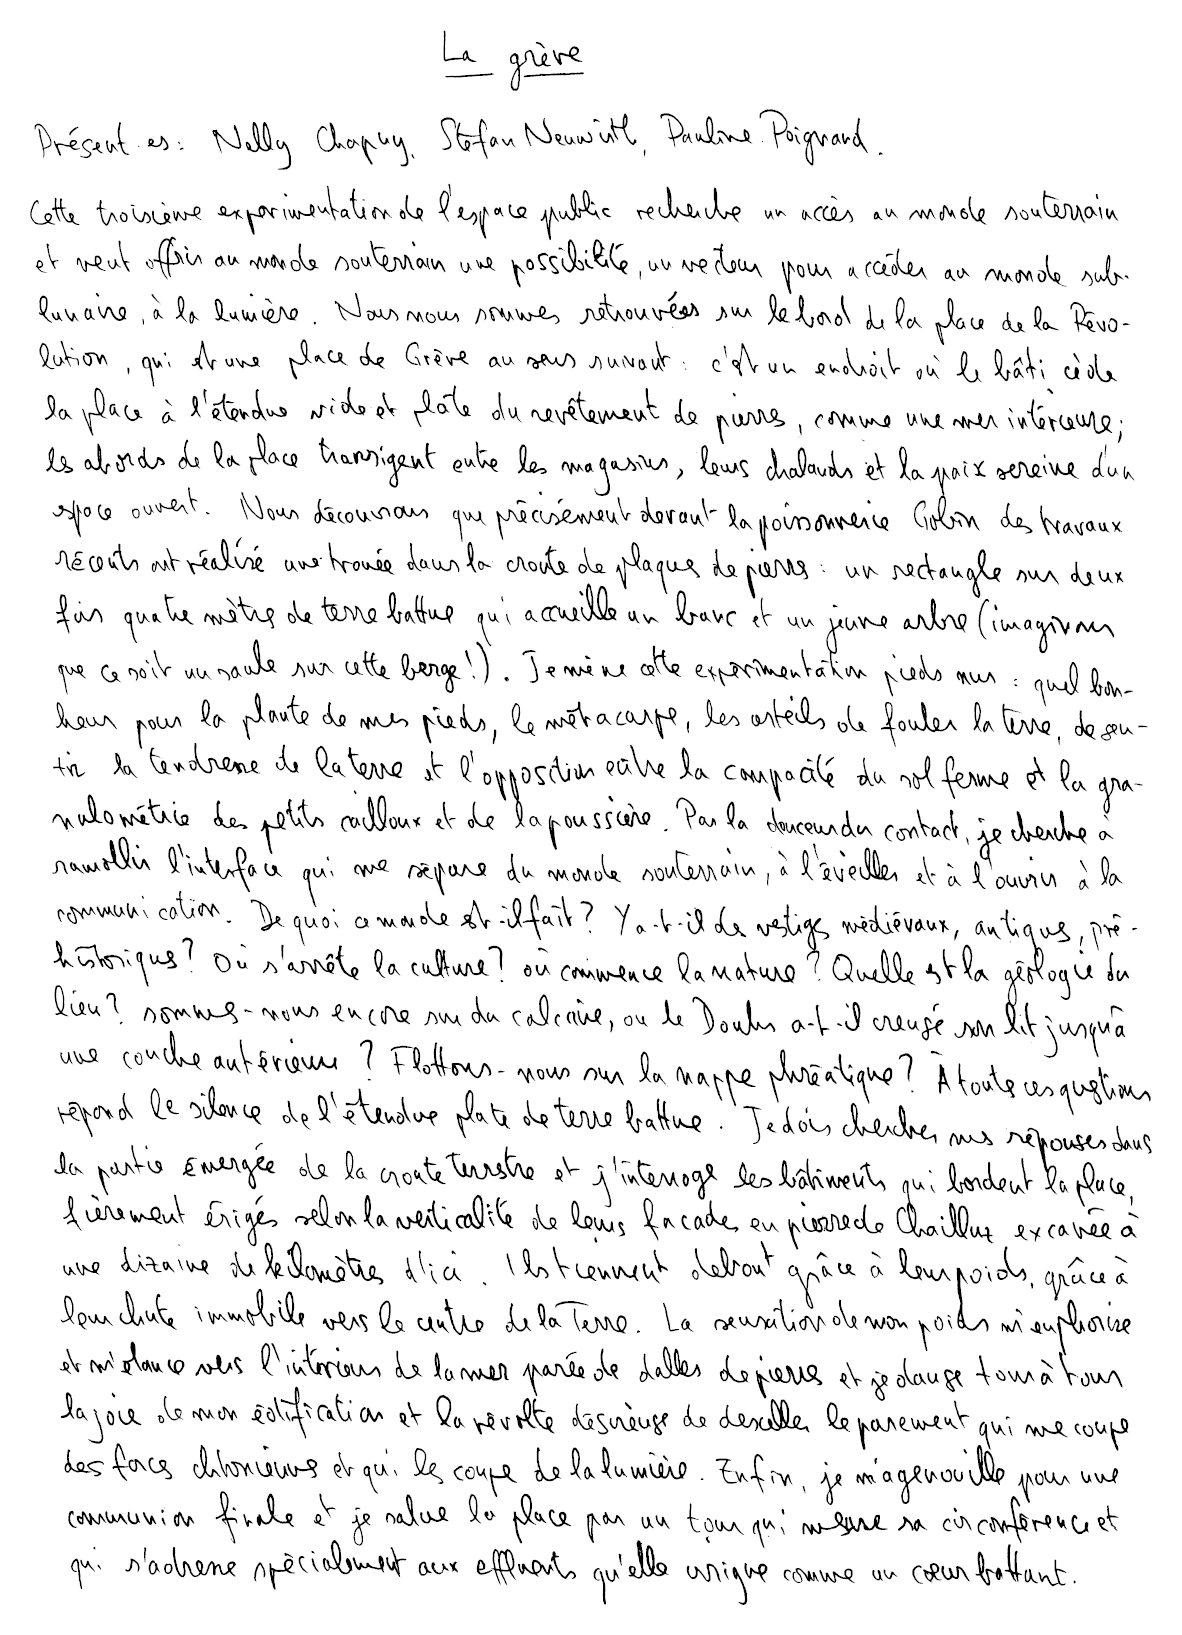 La grève
Présent·es : Nelly Chapuy, Stefan Neuwirth, Pauline Poignand.
Cette troisième expérimentation de l'espace public recherche un accès au monde souterrain
et veut offrir au monde souterrain une possibilité, un vecteur pour accéder au monde sub-
lunaire, à la lumière. Nous nous sommes retrouvées sur le bord de la place de la Révo-
lution, qui est une place de Grève au sens suivant : c'est un endroit où le bâti cède
la place à l'étendue vide et plate du revêtement de pierres, comme une mer intérieure ;
les abords de la place transigent entre les magasins, leurs chalands et la paix sereine d'un
espace ouvert. Nous découvrons que précisément devant la poissonnerie Gobin des travaux
récents ont réalisé une trouée dans la croute de plaques de pierres : un rectangle sur deux
fois quatre mètres de terre battue qui accueille un banc et un jeune arbre (imaginons
que ce soit un saule sur cette berge !). Je mène cette expérimentation pieds nus : quel bon-
heur pour la plante de mes pieds, le métacarpe, les orteils de fouler la terre, de sen-
tir la tendresse de la terre et l'opposition entre la compacité du sol ferme et la gra-
nulométrie des petits cailloux et de la poussière. Par la douceur du contact, je cherche à
ramollir l'interface qui me sépare du monde souterrain, à l'éveiller et à l'ouvrir à la
communication. De quoi ce monde est-il fait ? Y a-t-il des vestiges médiévaux, antiques, pré-
historiques ? Où s'arrête la culture ? où commence la nature ? Quelle est la géologie du
lieu ? sommes-nous encore sur du calcaire, ou le Doubs a-t-il creusé son lit jusqu'à
une couche antérieure ? Flottons-nous sur la nappe phréatique ? À toutes ces questions
répond le silence de l'étendue plate de terre battue. Je dois chercher mes réponses dans
la partie émergée de la croute terrestre et j'interroge les bâtiments qui bordent la place,
fièrement érigés selon la verticalité de leurs facades en pierre de Chailluz excavée à
une dizaine de kilomètres d'ici. Ils tiennent debout grâce à leur poids, grâce à
leur chute immobile vers le centre de la Terre. La sensation de mon poids m'euphorise
et m'élance vers l'intérieur de la mer parée de dalles de pierres et je danse tour à tour
la joie de mon édification et la révolte désireuse de desceller le parement qui me coupe
des forces chtoniennes et qui les coupe de la lumière. Enfin, je m'agenouille pour une
communion finale et je salue la place par un tour qui mesure sa circonférence et
qui s'adresse spécialement aux effluents qu'elle irrigue comme un cœur battant.